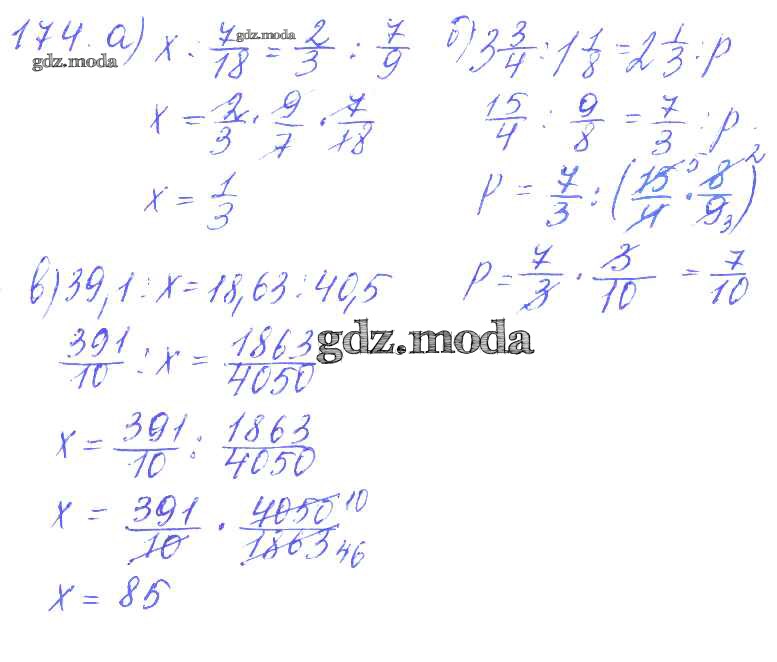 174. а) x : 7/18 = 2/3 : 7/9
gdz.moda
gdz.moda
x = 2/3 · 9/7 · 7/18
x = 1/3
б) 3 3/4 : 1 1/8 = 2 1/3 : p
15/4 : 9/8 = 7/3 : p
p = 7/3 : (15/4 · 8/9) 5 2 3
p = 7/3 · 3/10 = 7/10
в) 39,1 : x = 18,63 : 40,5
391/10 : x = 1863/4050
gdz.moda
x = 391/10 : 1863/4050
x = 391/10 · 4050/1863 10 46
x = 85